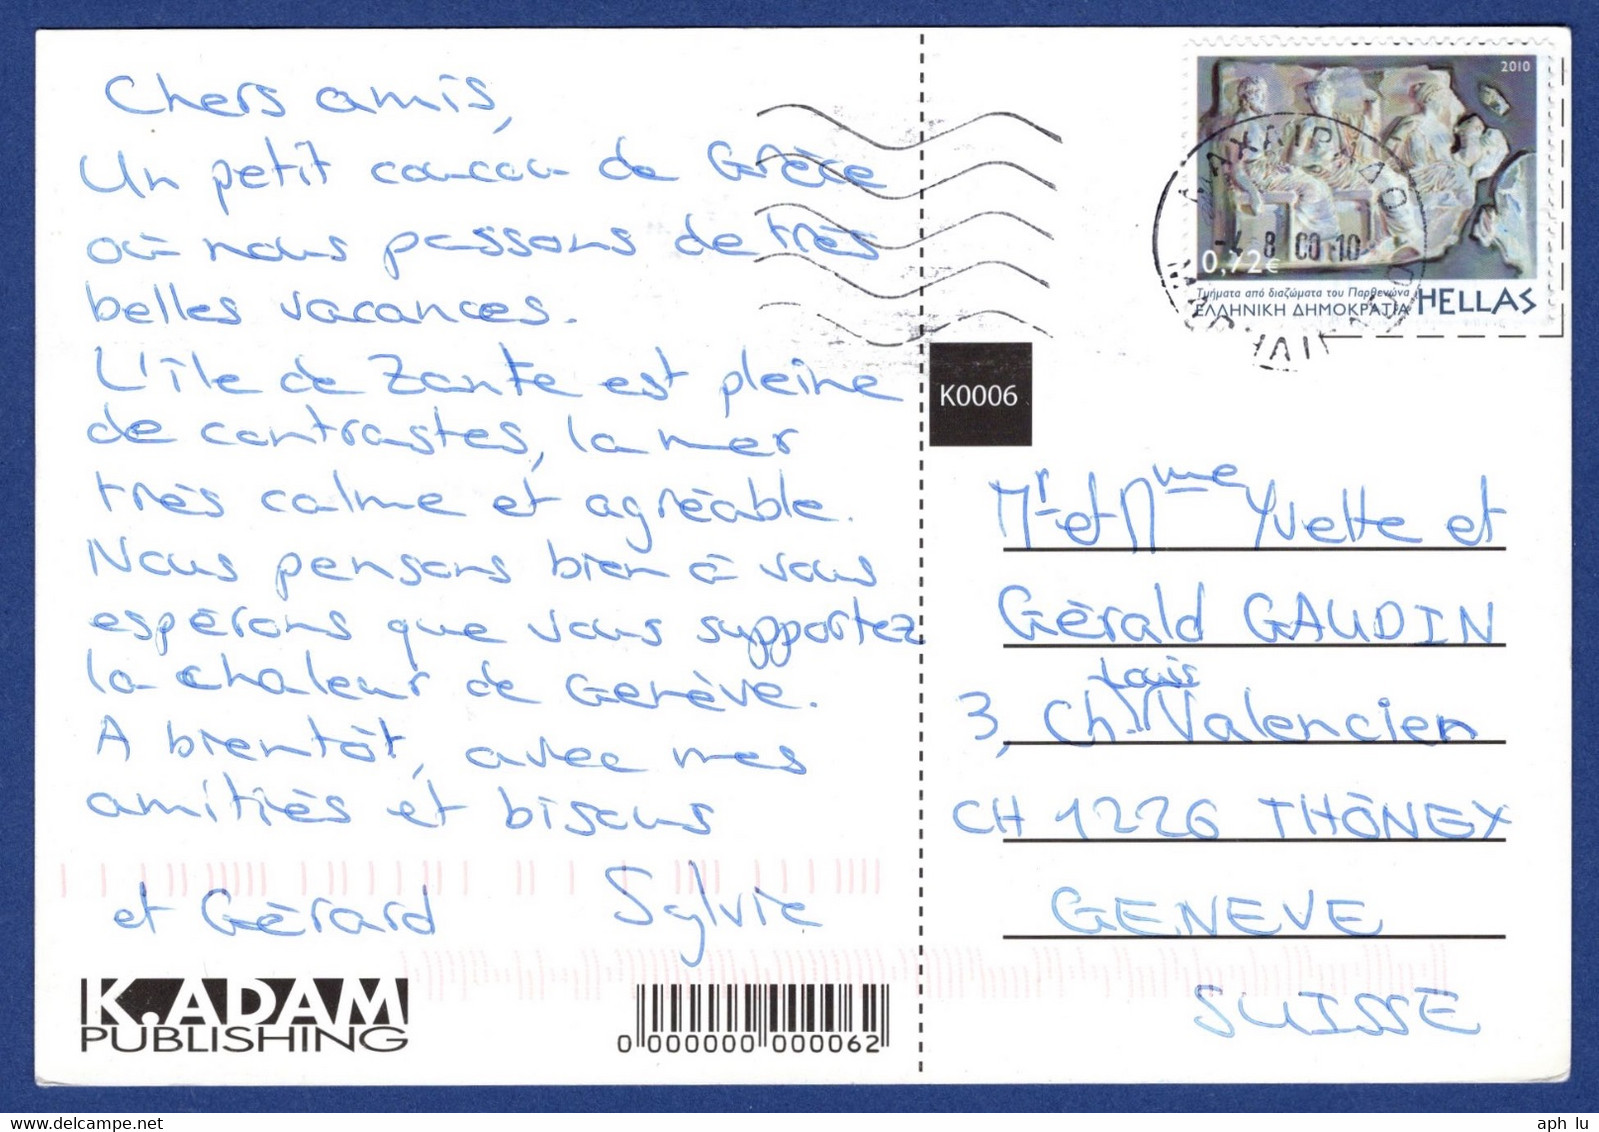 Chers amis,
Un petit coucou de Grèce
où nous passons de très
belles vacances.
L'île de Zante est pleine
de contrastes, la mer
très calme et agréable.
Nous pensons bien à vous
espérons que vous supportez
la chaleur de Genève.
A bientôt, avec mes
amitiés et bisous
et Gérard Sylvie
K.ADAM
PUBLISHING
0 000000 000062
K0006
2010
-4. 8 00 10
0,72€
Τμήματα από διαζώματα του Παρθενώνα
ΕΛΛΗΝΙΚΗ ΔΗΜΟΚΡΑΤΙΑ HELLAS
Mr et Mme Yvette et
Gérald GAUDIN
tais
3, Ch. Valencien
CH 1226 THÔNEX
GENEVE
SUISSE
aph lu